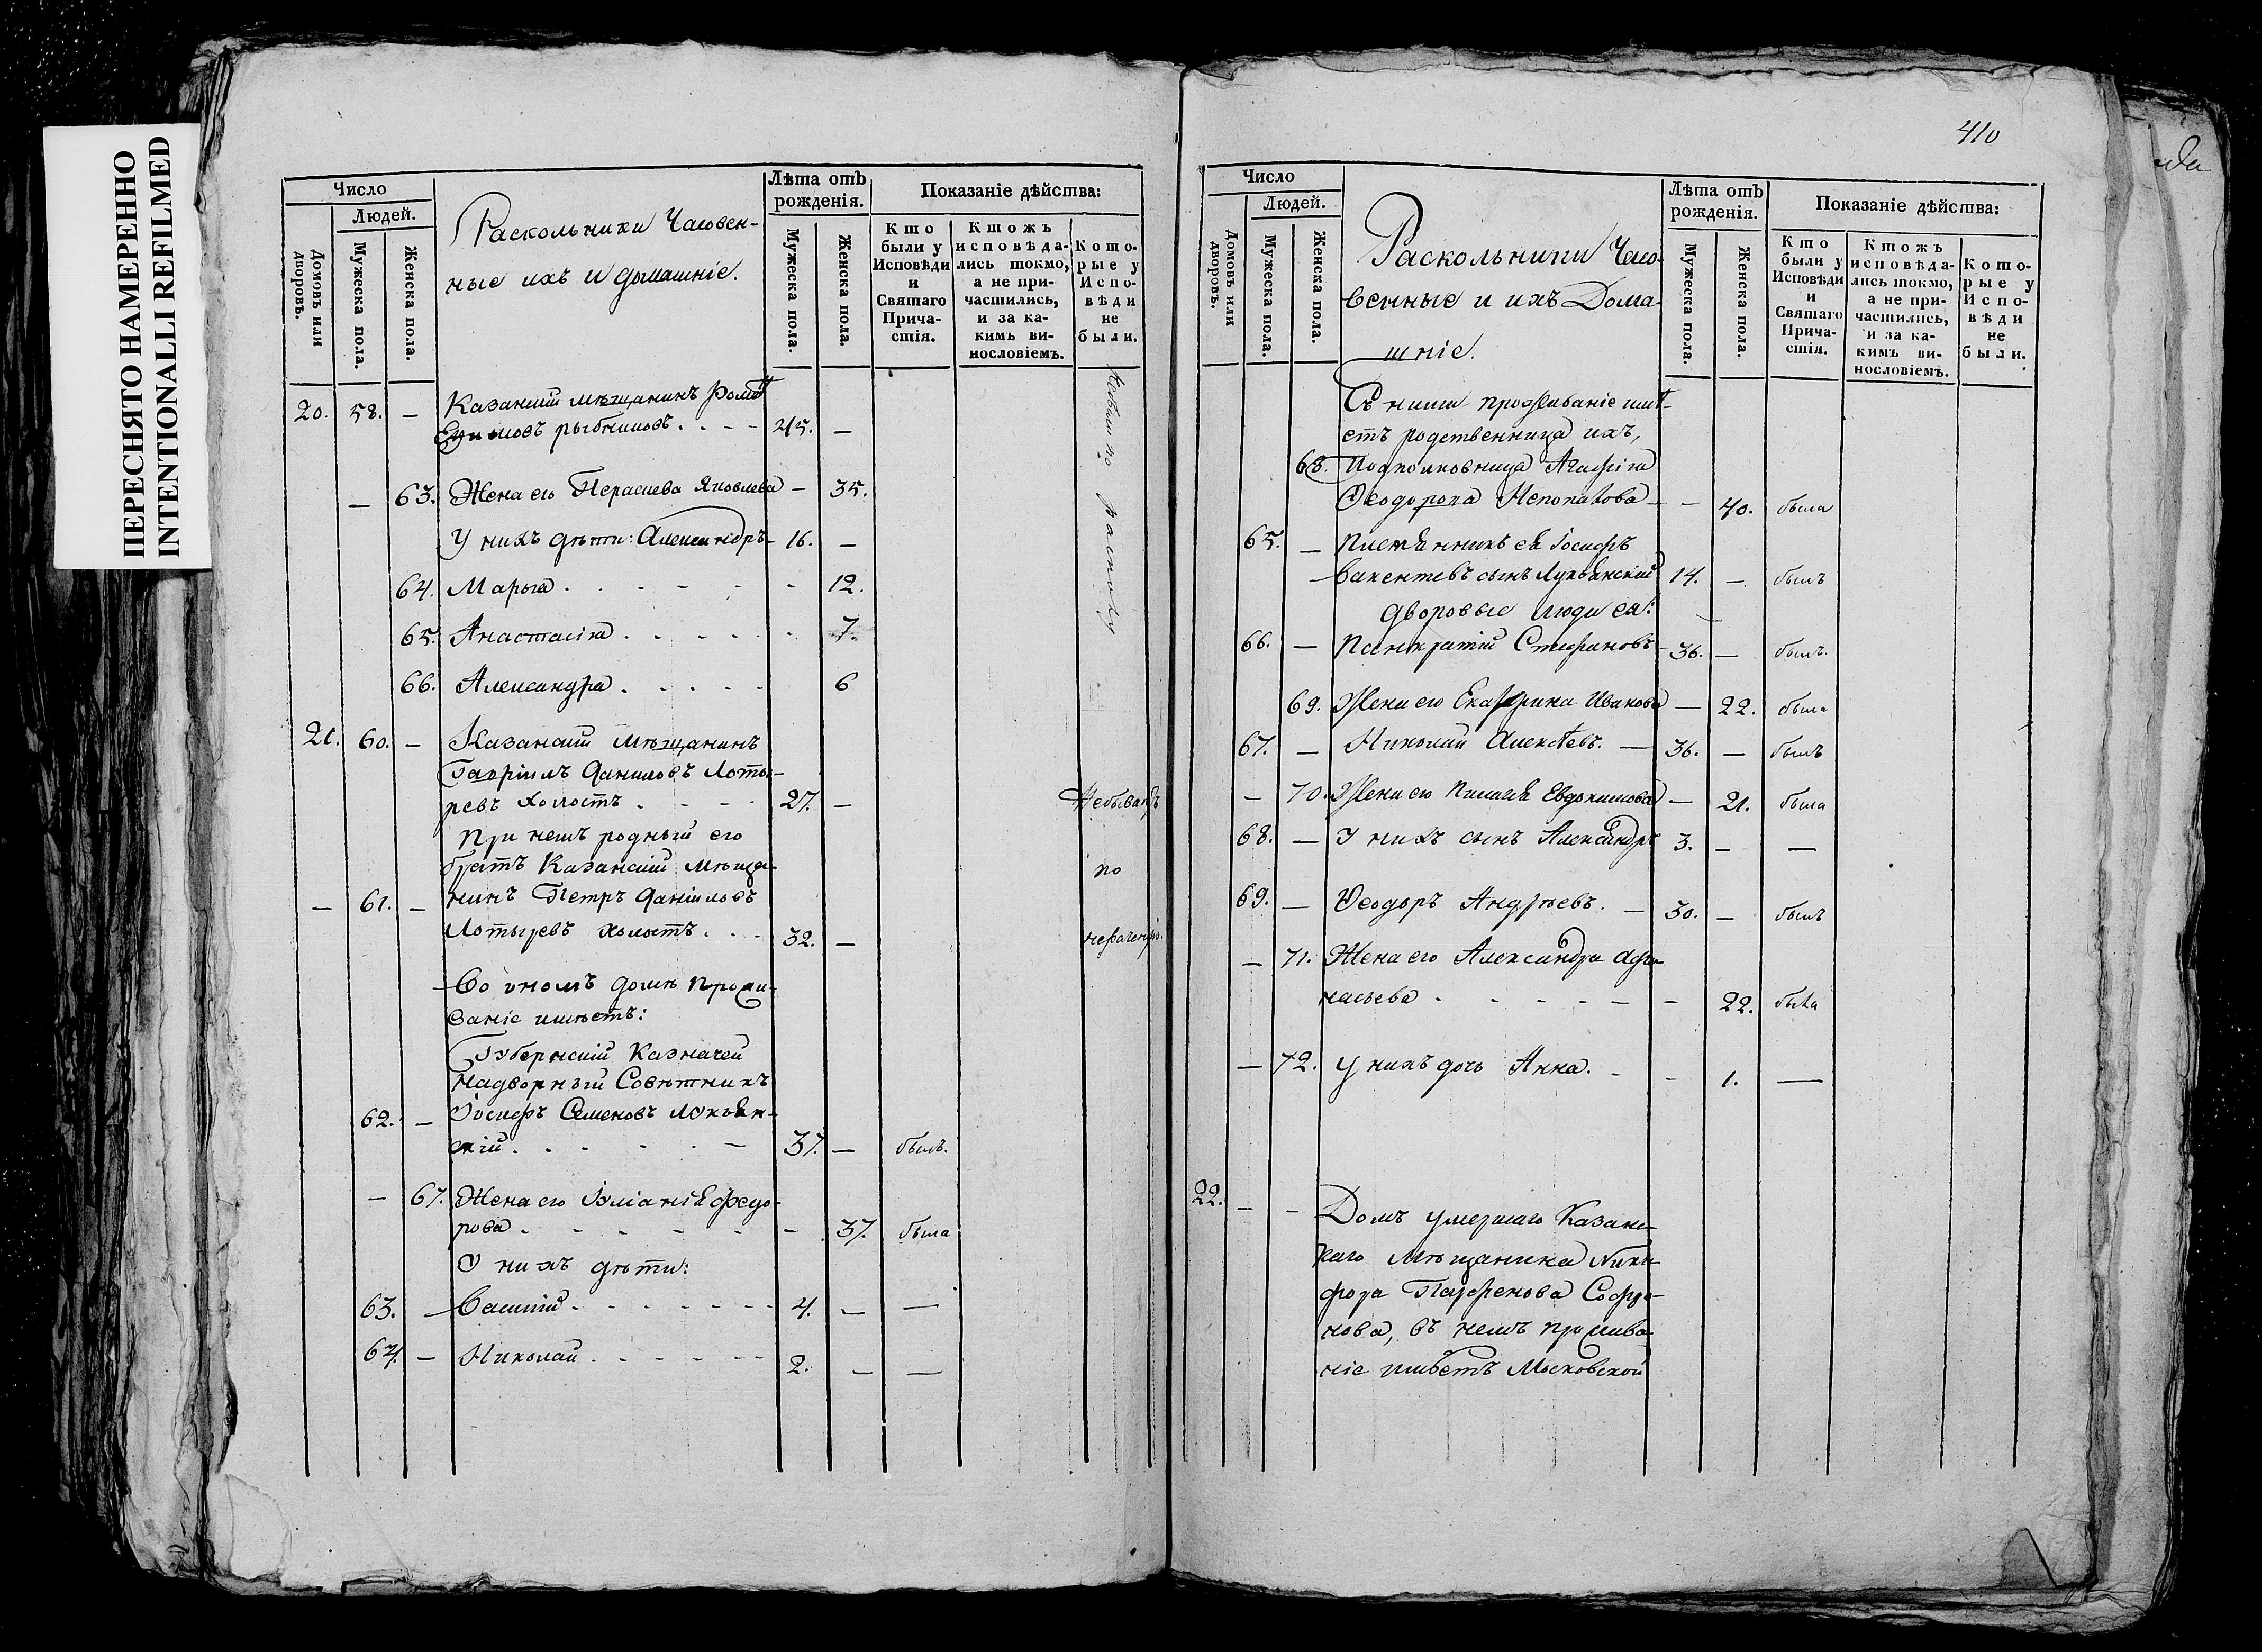 ПЕРЕСНЯТО НАМЕРЕННО
INTENTIONALLI REFILMED
Число
Людей.
Домовъ или дворовъ.
Мужеска пола.
Женска пола.
Раскольники Часовен-
ные ихъ и домашніе.
Лѣта отъ
рожденія.
Мужеска пола.
Женска пола.
Показаніе дѣйства:
Кто
были у
Исповѣди
и
Святаго
Прича-
стія.
Ктожъ
исповѣда-
лись токмо,
а не при-
частились,
и за ка-
кимъ ви-
нословіемъ.
Кото-
рые у
Испо-
вѣди
не
были.
20. 58. — Казанскій мѣщанинъ
рыбниковъ. 45. —
— 63. Жена его Параскева Яковлева — 35.
У нихъ дѣти: Александръ 16. —
64. Марья 12.
65. Анастасія 7.
66. Александра 6
по расколу
21. 60. — Казанскій мѣщанинъ
Гавріилъ Даниловъ Лоты-
ревъ холостъ 27. — Небыва
При немъ родный его
братъ Казанскій мѣща- по
— 61. — нинъ Петръ Даніиловъ
Лотыревъ холостъ 32. —
Во ономъ домѣ прожи-
ваніе имѣетъ:
Губернскій Казначей
Надворный Совѣтникъ
62. — Іосифъ Семеновъ Лукьян-
скій 37. — былъ.
— 67. Жена его Іуліанія Федо-
рова — 37. была
У нихъ дѣти:
63. — Василій 4. — —
64. — Николай 2. — —
410
Число
Людей.
Домовъ или дворовъ.
Мужеска пола.
Женска пола.
Раскольники Часо-
венные и ихъ Дома-
шніе.
Лѣта отъ
рожденія.
Мужеска пола.
Женска пола.
Показаніе дѣйства:
Кто
были у
Исповѣди
и
Святаго
Прича-
стія.
Ктожъ
исповѣда-
лись токмо,
а не при-
частились,
и за ка-
кимъ ви-
нословіемъ.
Кото-
рые у
Испо-
вѣди
не
были.
Съ ними проживаніе имѣ-
етъ родственница ихъ,
68. Подполковница Агафія
Ѳеодорова — 40. была
65. — Племянникъ ея Іосифъ
Викентевъ сынъ Лукьянскій 14. — былъ
Дворовые люди ея:
66. — Панкратій Стефановъ 36. — былъ.
69. Жена его Екатерина Иванова — 22. была
67. — Николай Алексѣевъ. 36. — былъ
— 70. Жена его Пелагея Евдокимова — 21. была
68. — У нихъ сынъ Александръ 3. — —
69. — Ѳеодоръ Андреевъ. 30. — былъ
— 71. Жена его Александра Афа-
насьева — 22. была
— 72. У нихъ дочь Анна. — 1. —
22. — — Домъ умершаго Казанс-
каго мѣщанина Ники-
фора Парфенова Софро-
нова, въ немъ прожива-
ніе имѣетъ Московской